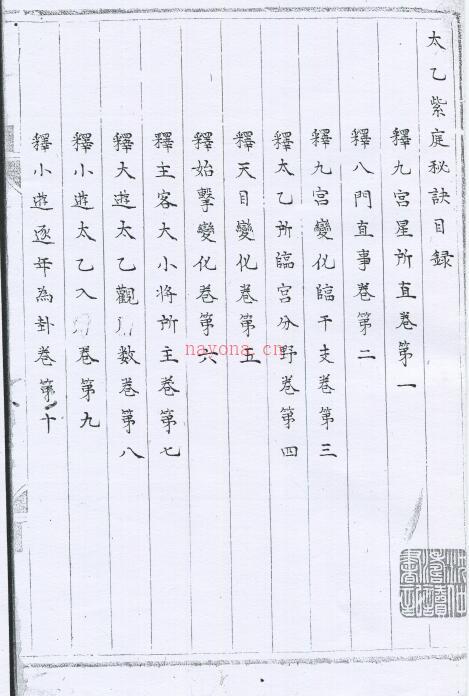 太乙紫庭秘訣目録
釋九宮星所直卷第一
釋八門直事卷第二
釋九宮變化臨干支卷第三
釋太乙所臨宮分野卷第四
釋天目變化卷第五
釋始擊變化卷第六
釋主客大小將所主卷第七
釋大遊太乙觀數卷第八
釋小遊太乙入卷第九
釋小遊逐年為卦卷第十
nayona.cn